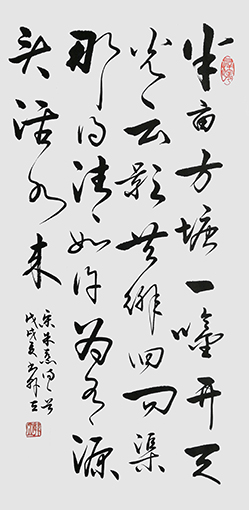 半亩方塘一鑑开天
光云影共徘徊问渠
那得清如许为有源
头活水来
宋朱熹诗
戊戌夏